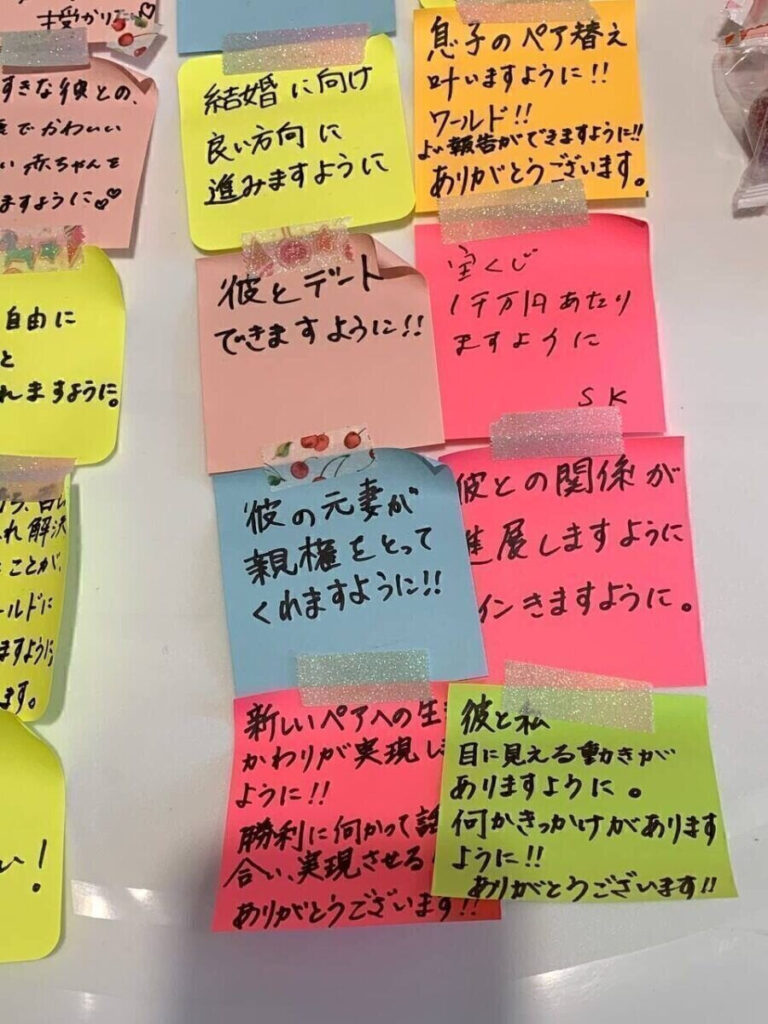 授かりた
すきな彼との、
でかわいい
い赤ちゃんを
ますように♡♡
結婚に向け
良い方向に
進みますように
息子のペア替え
叶いますように!!
ワールド!!
よい報告ができますように!!
ありがとうございます。
彼とデート
できますように!!
宝くじ
1千万円あたり
ますように
SK
自由に
と
れますように。
彼の元妻が
親権をとって
くれますように!!
彼との関係が
進展しますように
インきますように。
れ解決
ことが、
ールドに
ますように
ます。
新しいペアへの生
かわりが実現し
ように!!
勝利に向かって話
合い、実現させる
ありがとうございます!!
彼と私
目に見える動きが
ありますように。
何かきっかけがあります
ように!!
ありがとうございます!!
い!